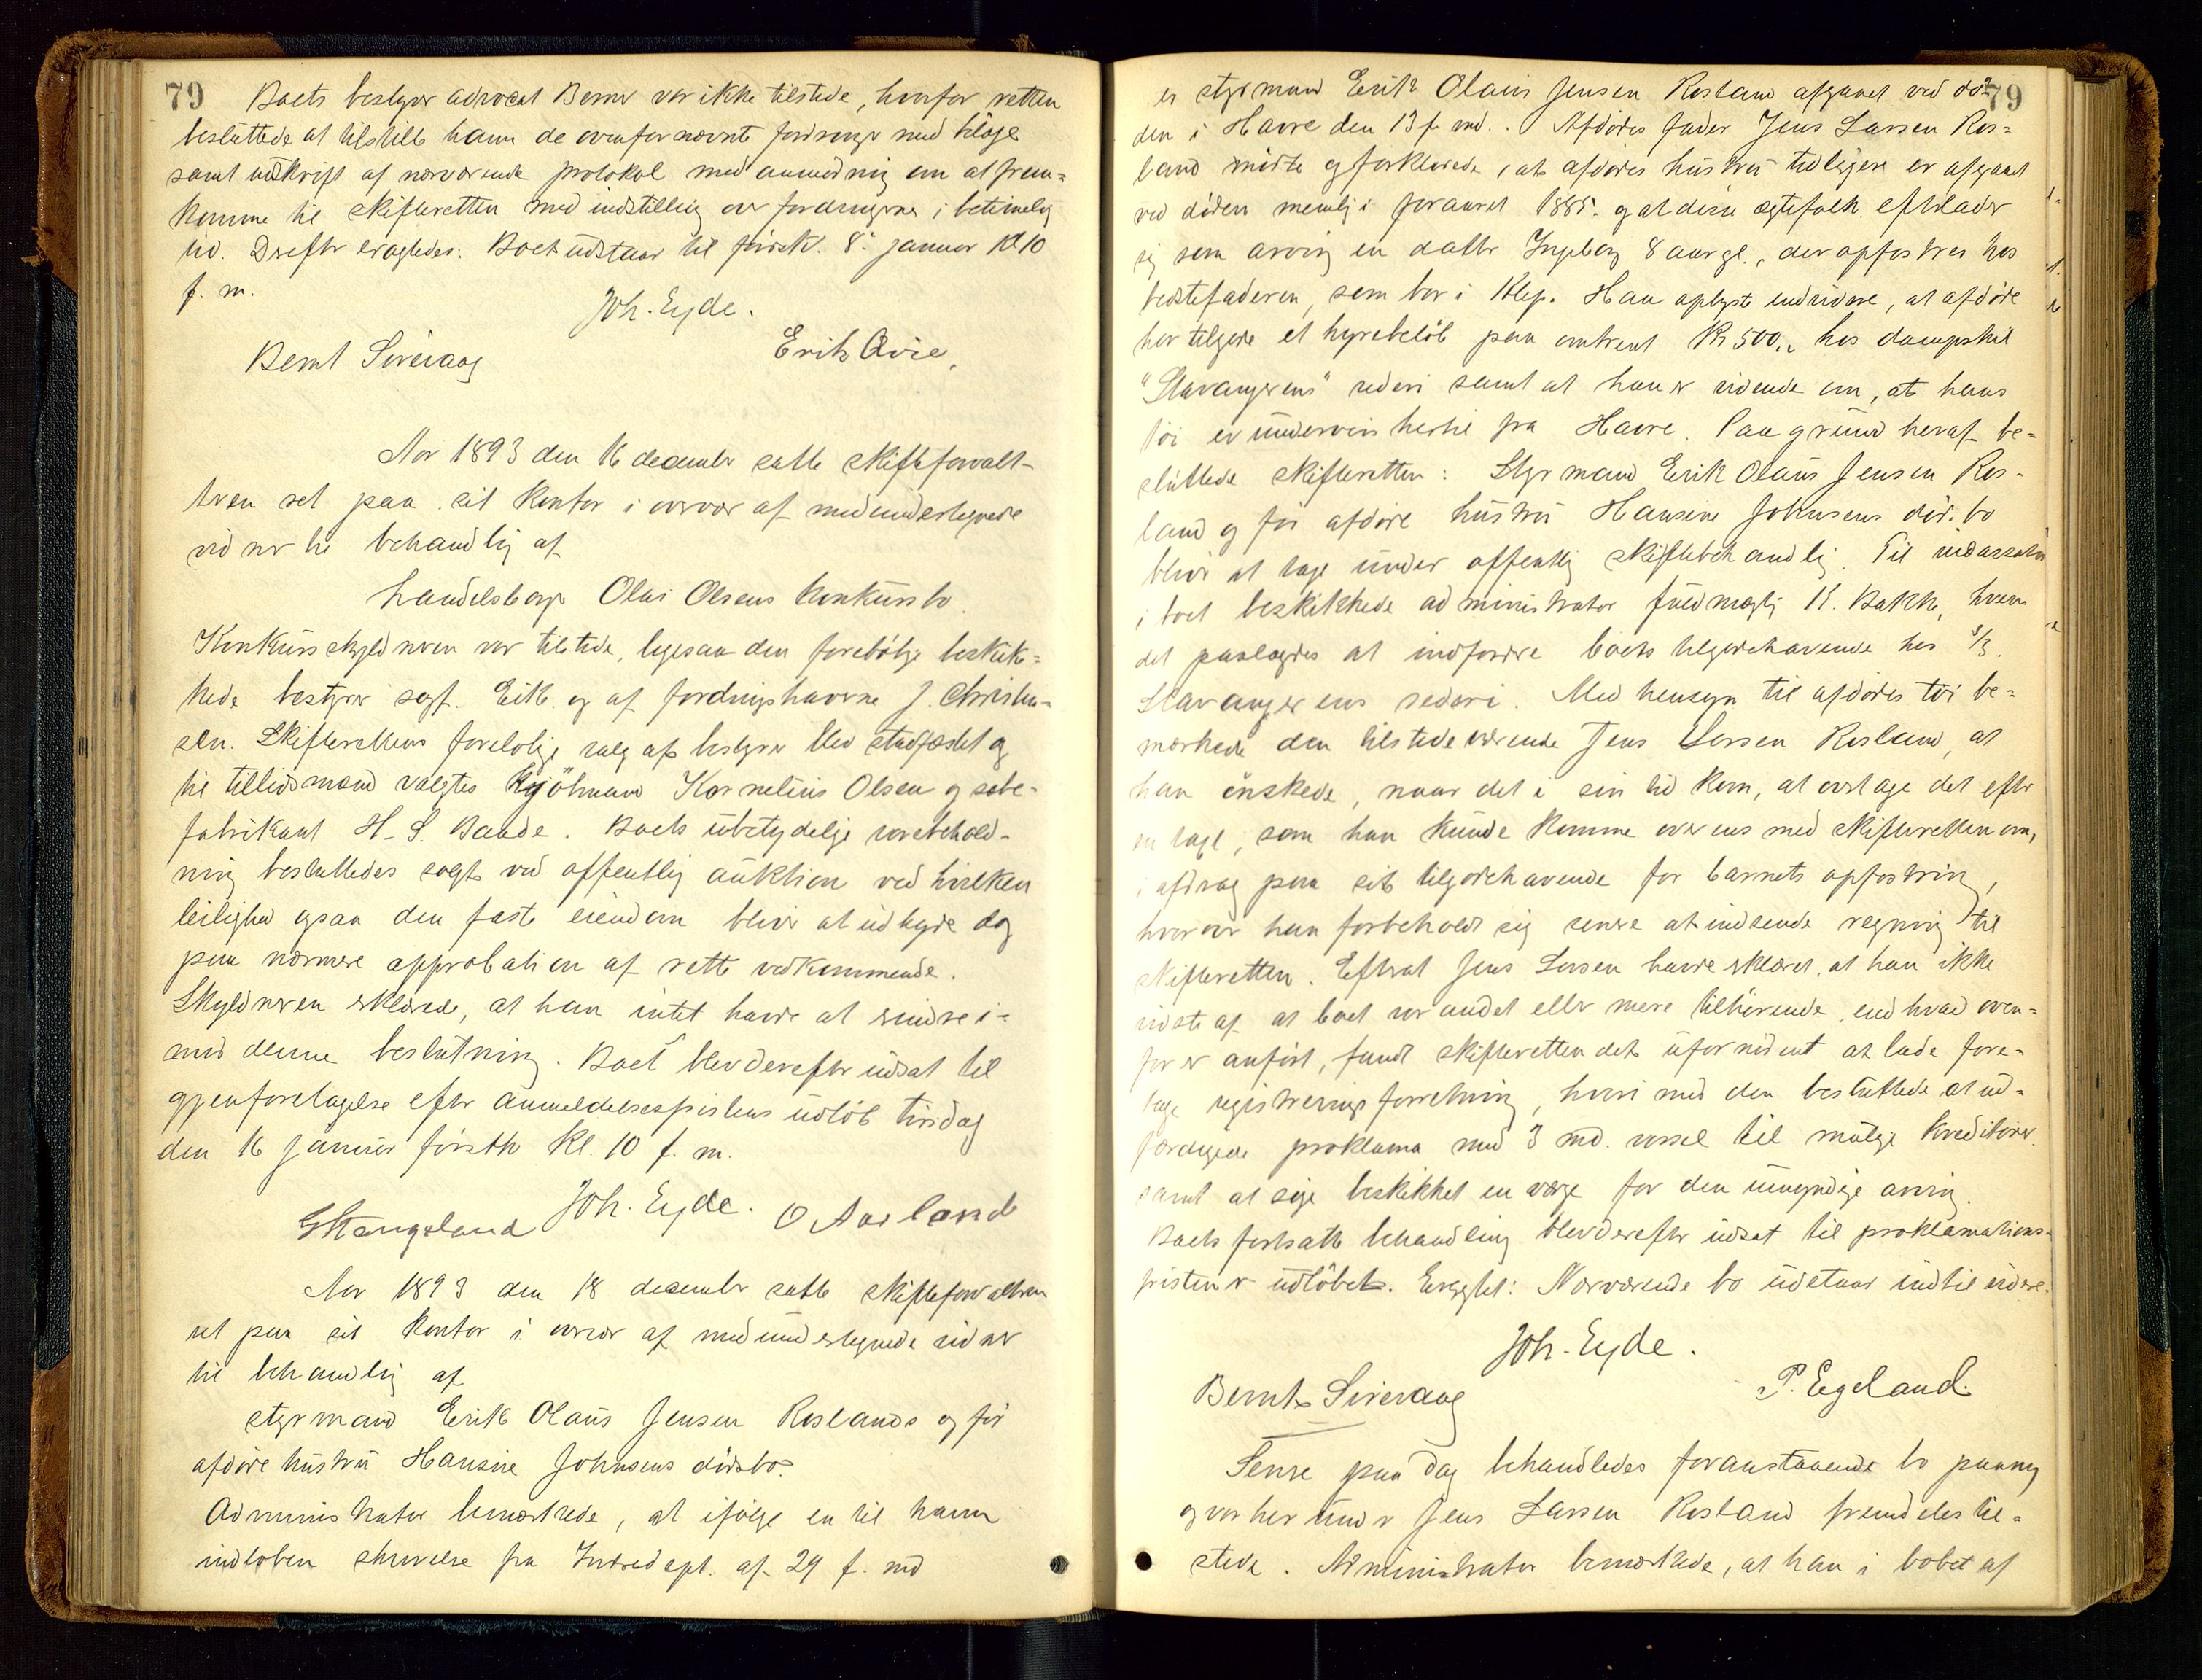 79
Boets bestyrer advocat Berner var ikke tilstede, hvorfor retten
besluttede at tilstille ham de ovenfor nævnte fordringer med bilage
samt udskrift af nærværende protokol med anmodning om at frem=
komme til skifteretten med indstilling over fordringerne i betimelig
tid. Derefter eragtedes: Boet udstaar til førstk. 8. januar kl 10
f. m.
Joh. Eyde.
Bernt Sirevaag
Erik Qvie.
Aar 1893 den 16 december satte skifteforvalt-
eren ret paa sit kontor i overvær af medundertegnede
vidner til behandling af
handelsborger Olai Olsens konkursbo.
Konkursskyldneren var tilstede, ligesaa den foreløbige beskik=
kede bestyrer sagf. Eik og af fordringshaverne J. Christen=
sen. Skifterettens foreløbige valg af bestyrer blev stadfæstet og
til tillidsmænd valgtes kjøbmand Kornelius Olsen og sæbe-
fabrikant H. S. Baade. Boets ubetydelige varebehold-
ning besluttedes solgt ved offentlig auktion ved hvilken
leilighed ogsaa den faste eiendom bliver at udbyde dog
paa nærmere approbation af rette vedkommende.
Skyldneren erklærede, at han intet havde at erindre i-
mod denne beslutning. Boet blev derefter udsat til
gjenforetagelse efter anmeldelsesfristens udløb tirsdag
den 16 januar førstk kl. 10 f. m.
Joh. Eyde.
G Stangeland
O Aarland
Aar 1893 den 18 december satte skifteforvalteren
ret paa sit kontor i overvær af medundertegnede vidner
til behandling af
styrmand Erik Olaus Jensen Roslands og før
afdøde hustru Hansine Johnsens dødsbo.
Administrator bemærkede, at ifølge en til ham
indløben skrivelse fra Indredept. af 29 f. md
79
er styrmand Erik Olaus Jensen Rosland afgaaet ved dø=
den i Havre den 13 f. md. Afdødes fader Jens Larsen Ros=
land mødte og forklarede, at afdødes hustru tidligere er afgaaet
ved døden nemlig i foraaret 1885. og at disse ægtefolk efterlader
sig som arving en datter Ingeborg 8 aar gl., der opfostres hos
bedstefaderen, som bor i Klep. Han oplyste endvidere, at afdøde
har tilgode et hyrebeløb paa omtrent Kr 500,, hos dampskib
"Stavangerens" rederi samt at han er vidende om, at hans
tøi er underveis hertil fra Havre. Paa grund heraf be-
sluttede skifteretten: Styrmand Erik Olaus Jensen Ros-
land og før afdøde hustru Hansine Johnsens død.bo
bliver at tage under offentlig skiftebehandling. Til incassator
i boet beskikkede administrator fuldmægtig K. Bakke, hvem
det paalagdes at indfordre boets tilgodehavende hos S/S.
Stavangerens rederi. Med hensyn til afdødes tøi be=
mærkede den tilstedeværende Jens Larsen Rosland, at
han ønskede, naar det i sin tid kom, at overtage det efter
en taxt, som han kunde komme overens med skifteretten om,
i afdrag paa sit tilgodehavende for barnets opfostring,
hvorover han forbeholdt sig senere at indsende regning til
skifteretten. Efterat Jens Larsen havde erklæret, at han ikke
vidste af at boet var andet eller mere tilhørende, end hvad oven=
for er anført, fandt skifteretten det ufornødent at lade fore-
tage registreringsforretning, hvorimod den besluttede at ud=
færdigede proklama med 3 md. varsel til mulige kreditorer.
samt at søge beskikket en værge for den umyndige arving.
Boets fortsatte behandling blev derefter udsat til proklamations-
fristen er udløbet. Eragtet: Nærværende bo udstaar indtil videre.
Joh. Eyde.
Bernt Sirevaag
P. Egeland.
Senere paa dag behandledes foranstaaende bo paany
og var herunder Jens Larsen Rosland fremdeles til=
stede. Administrator bemærkede, at han i løbet af